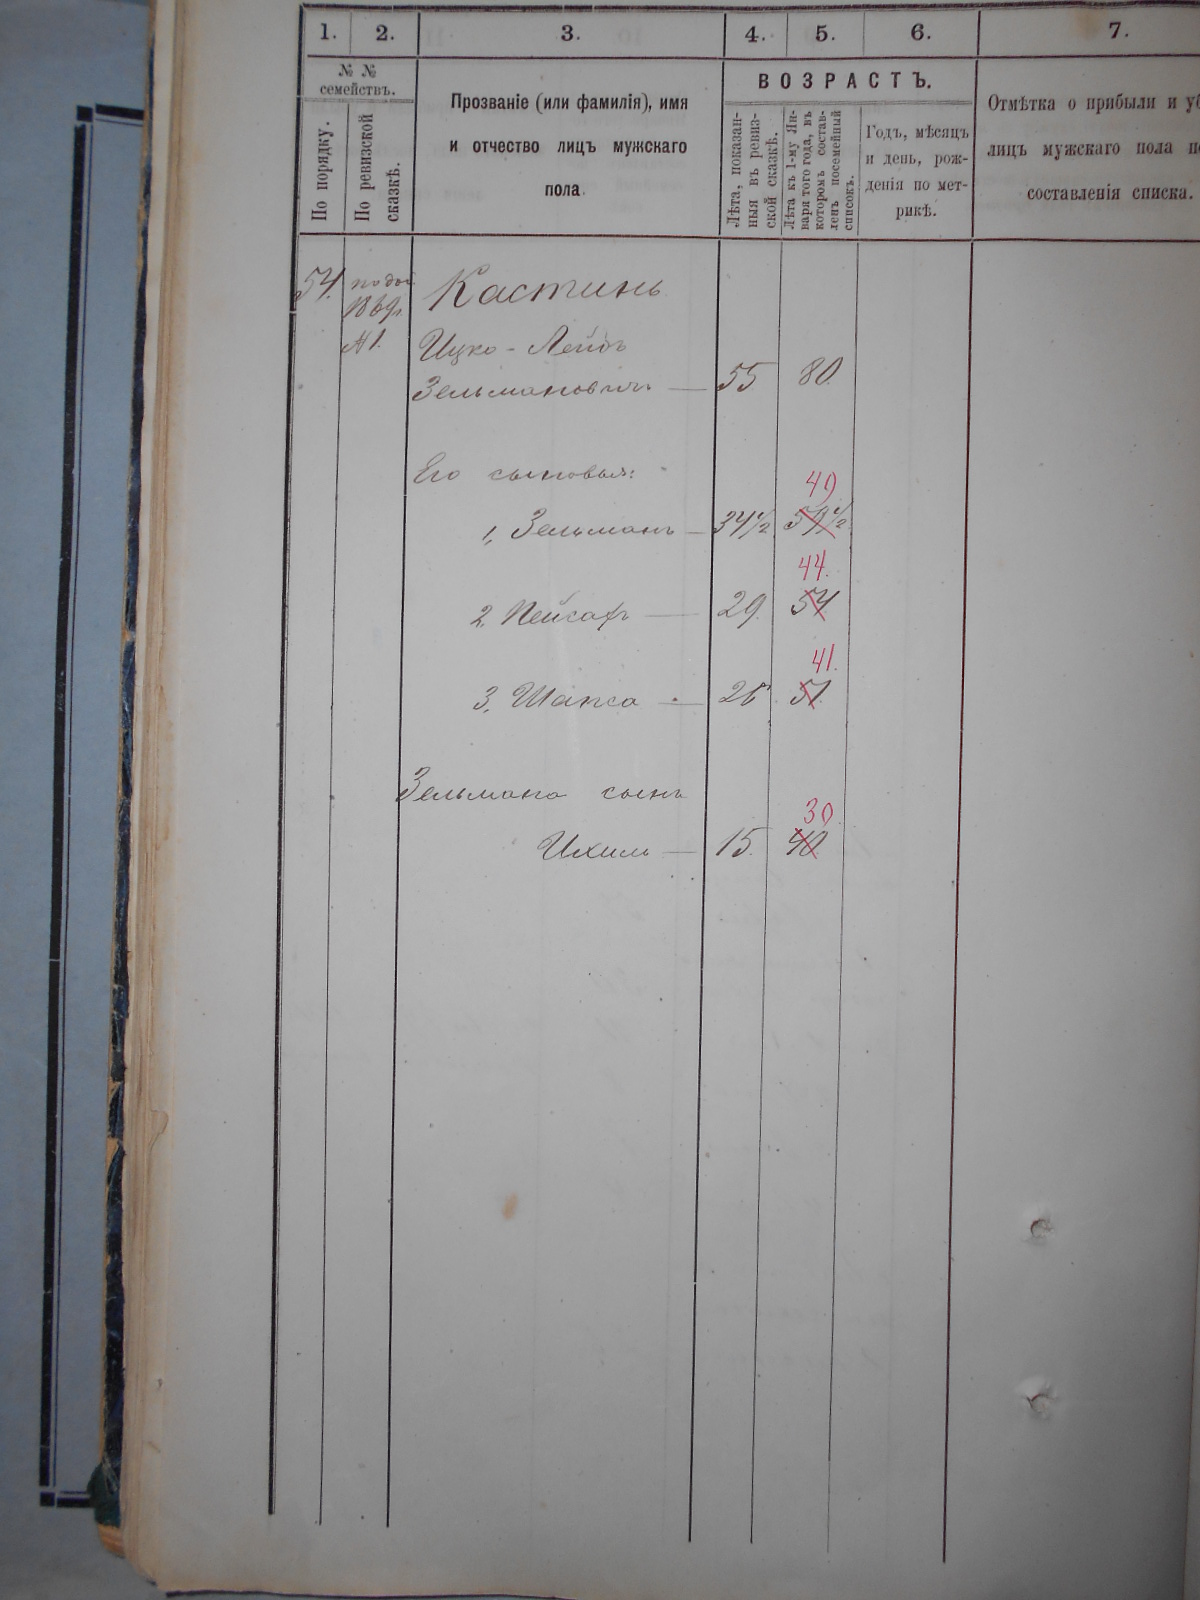 1. 2. 3. 4. 5. 6. 7.
№ №
семействъ.
По порядку.
По ревизской
сказкѣ.
Прозваніе (или фамилія), имя
и отчество лицъ мужскаго
пола
ВОЗРАСТЪ.
Лѣта, показан-
ныя въ ревиз-
ской сказкѣ.
Лѣта къ 1-му Ян-
варя того года, въ
которомъ состав-
ленъ посемейный
списокъ.
Годъ, мѣсяцъ
и день, рож-
денія по мет-
рикѣ.
Отмѣтка о прибыли и уб
лицъ мужскаго пола по
составленія списка.
54. Кастинъ
1869г.
№ 1. Ицко - Лейбъ
Зельмановичъ — 55 80.
Его сыновья:
49
1, Зельманъ — 34 1/2 59 1/2
44.
2, Пейсахъ — 29. 54
41.
3, Шапса — 26 51
Зельмана сынъ
30
Ихиль — 15. 40